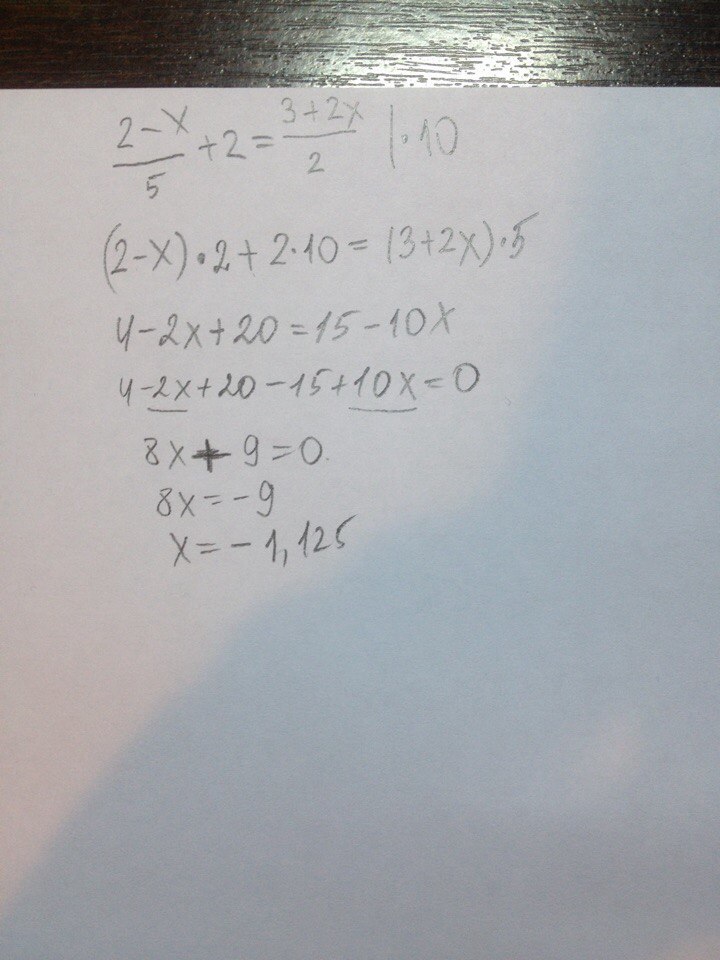 (2-x)/5 + 2 = (3+2x)/2 |·10
(2-x)·2+2·10=(3+2x)·5
4-2x+20=15-10x
4-2x+20-15+10x=0
8x+9=0.
8x=-9
x=-1,125